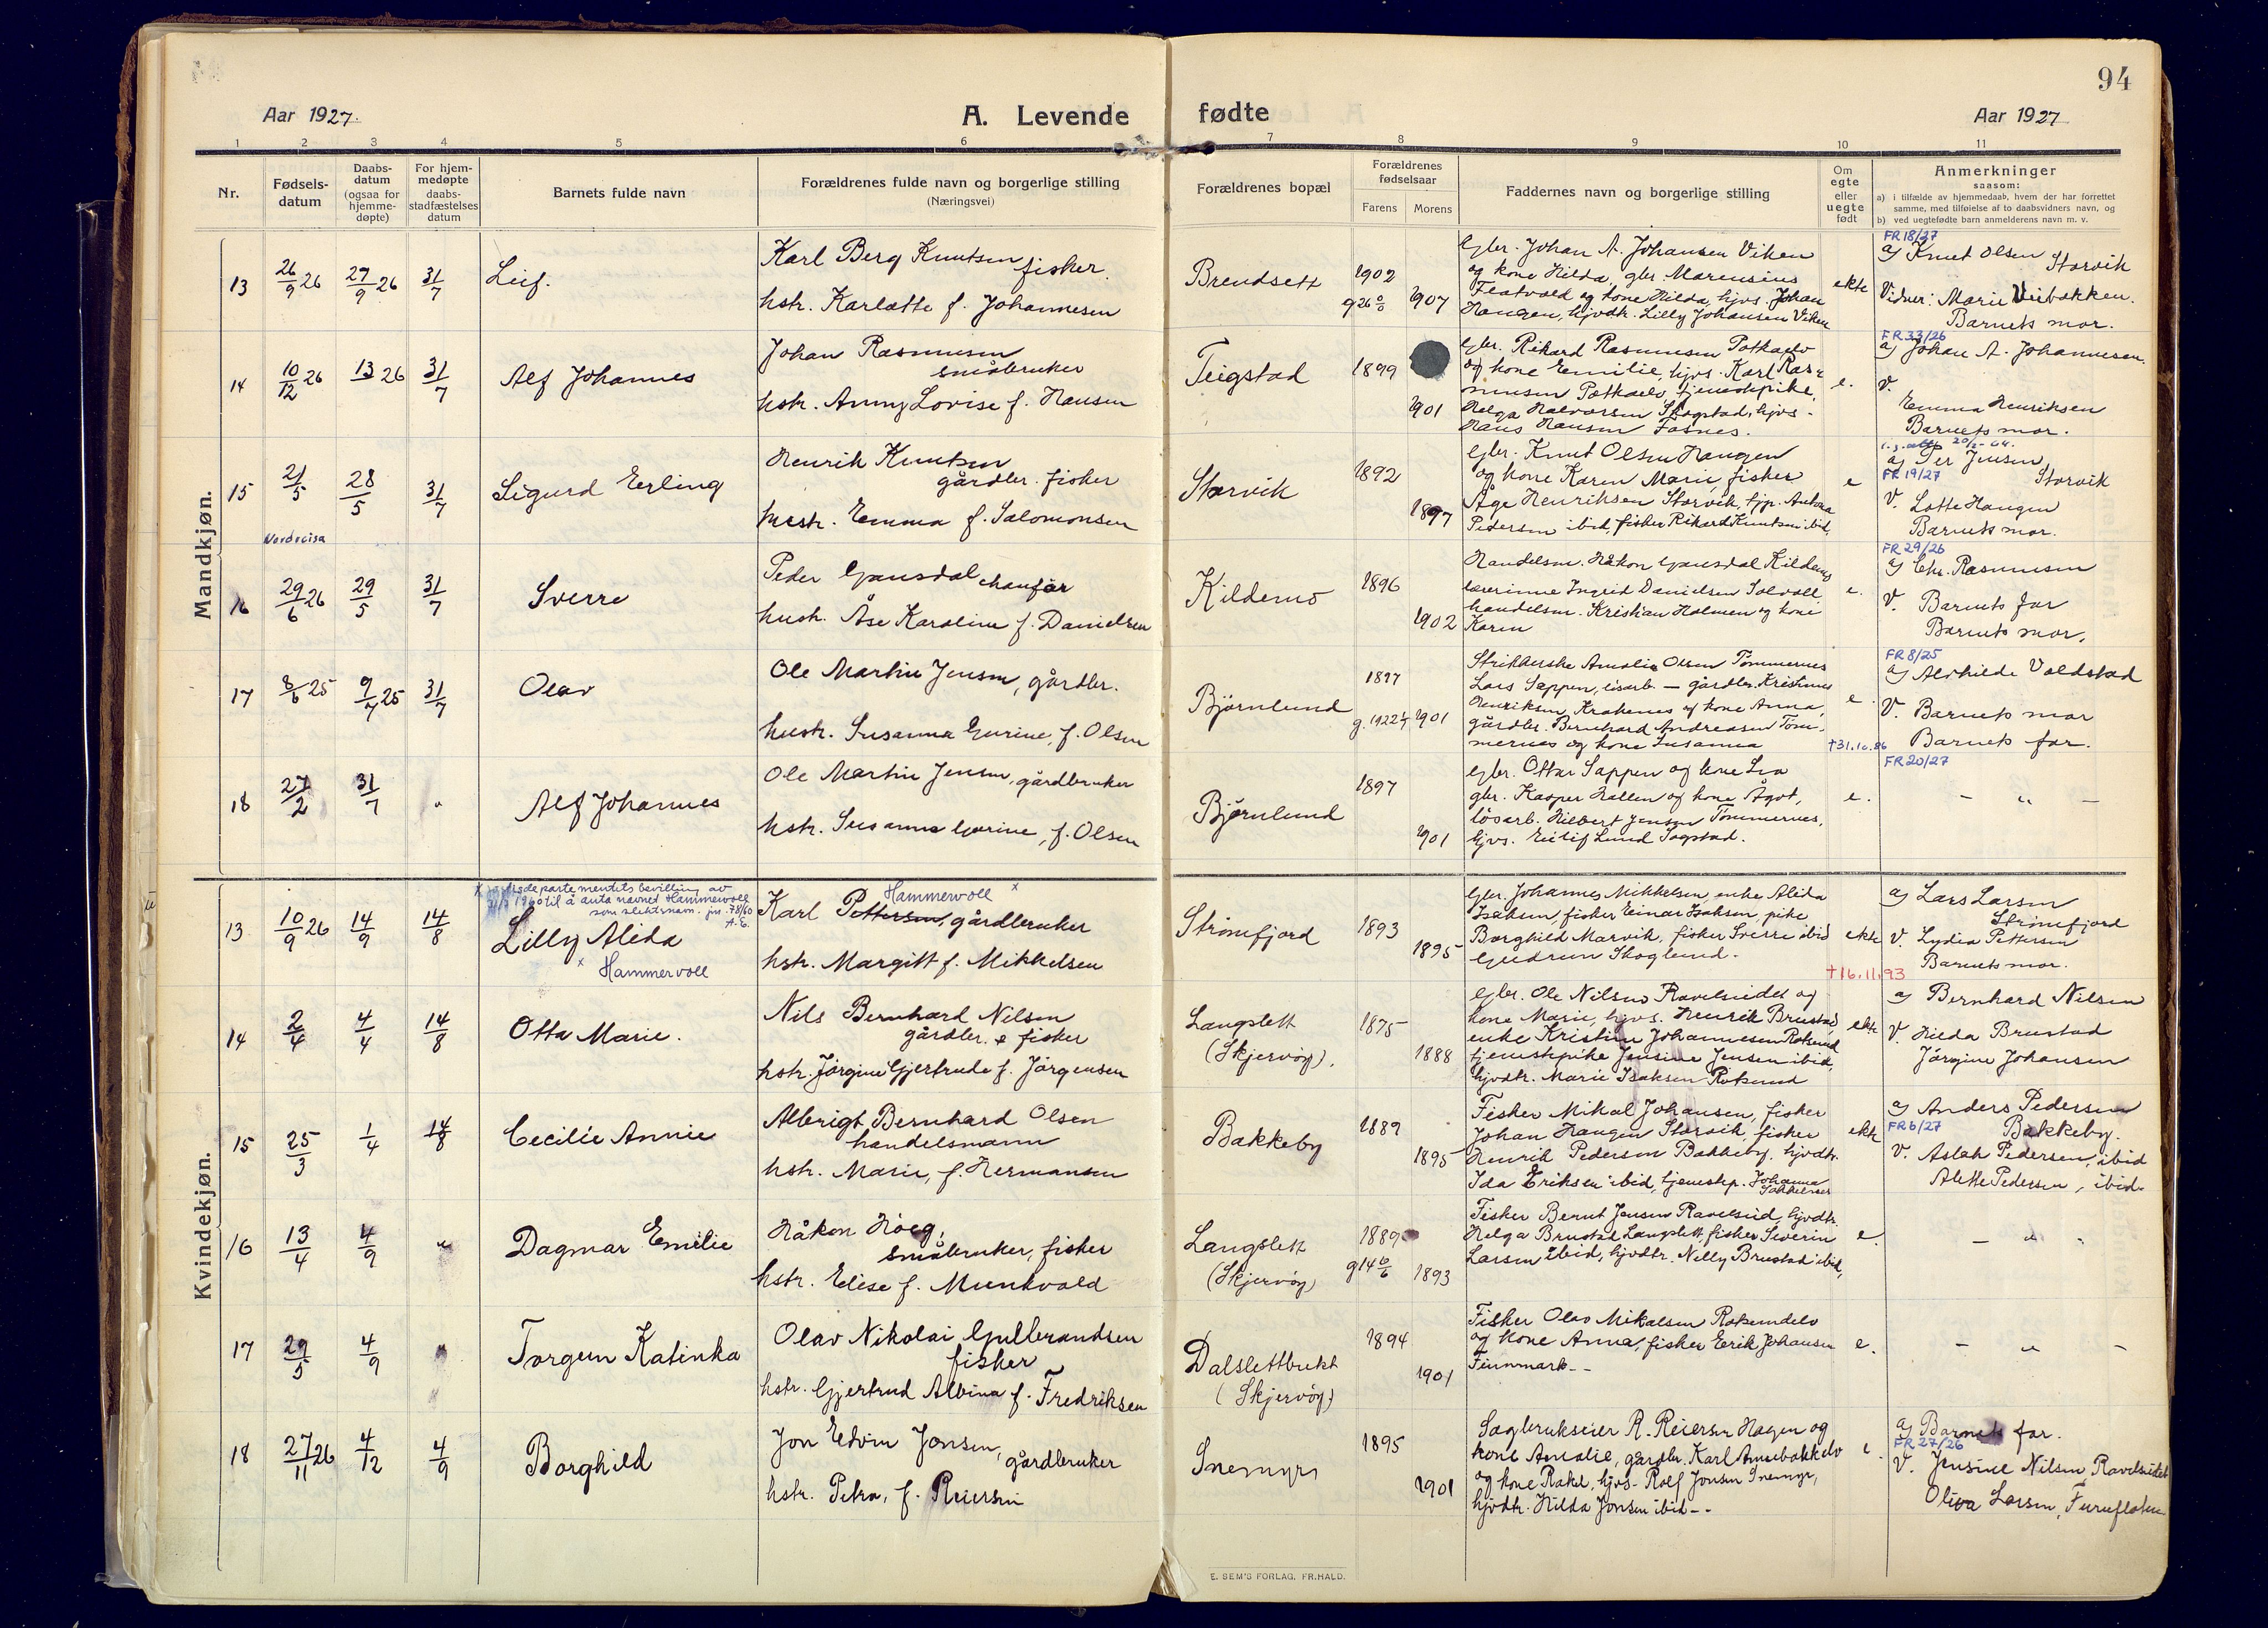 94
Aar 1927.
A. Levende fødte
Aar 1927
1 2 3 4 5 6 7 8 9 10 11
Nr.
Fødsels-datum
Daabs-datum (ogsaa for hjemme-døpte)
For hjem-medøpte daabs-stadfæstelses datum
Barnets fulde navn
Forældrenes fulde navn og borgerlige stilling
(Næringsvei)
Forældrenes bopæl
Forældrenes fødselsaar
Farens Morens
Faddernes navn og borgerlige stilling
Om egte eller uegte født
Anmerkninger
saasom:
a) i tilfælde av hjemmedaab, hvem der har forrettet
samme, med tilføielse af to daabsvidners navn, og
b) ved uegtefødte barn anmelderens navn m. v.
Mandkjøn.
13 26/9 26 27/9 26 31/7 Leif.
Karl Berg Knutsen fisker.
hstr. Karlotte f. Johannesen
Brendsett 1902 1907
Gbr. Johan A. Johansen Viken
og kone Hilda, gbr. Marensius
Flatvold og kone Hilda, hjvs. Johan
Haugen, hjvdtr. Lilly Johansen Viken
ekte
FR 18/27
a) Knut Olsen
Storvik
Vidner: Marie
Barnets mor.
14 10/12 26 13 26 31/7 Alf Johannes
Johan Rasmussen
småbruker
hstr. Anny Lovise f. Hansen
Teigstad 1899 1901
Gbr. Rikard Rasmussen
og kone Emilie, hjvs. Karl Ras-
mussen tjenestepike,
Helga Halvorsen Skogstad, hjvs.
Hans Hansen
e.
FR 33/26
a) Johan A. Johannesen.
V.
Emma Henriksen
Barnets mor.
15 21/5 28/5 31/7 Sigurd Erling
Nordreisa
Henrik Knutsen
gårdbr. fisker
hustr. Emma f. Salomonsen
Storvik 1892 1897
Gbr. Knut Olsen Haugen
og kone Karen Marie, fisker
Åge Henriksen Storvik, tjp. Antona
Pedersen ibid, fisker Rikard Knutsen ibid.
e
a) Per Jensen
FR 19/27
Storvik
V. Lotte Haugen
Barnets mor.
16 29/6 26 29/5 31/7 Sverre
Peder Gausdal chaufør
hustr. Åse Karoline f. Danielsen
Kildemo 1896 1902
Handelsm. Håkon Gausdal Kildemo
lærerinne Ingrid Danielsen Solvoll
handelsm. Kristian Holmen og kone
Karen
e.
FR 29/26
a) Chr. Rasmussen
V. Barnets far
Barnets mor.
17 8/6 25 9/7 25 31/7 Olav
Ole Martin Jensen, gårdbr.
hustr. Susanna Gurine, f. Olsen
Bjørnlund 1897 1901
Strikkerske Amalie Olsen Tømmernes
Lars Sappen, løsarb. – gårdbr. Kristines
Henriksen, Krakenes og kone Anna,
gårdbr. Bernhard Andreassen Tøm-
mernes og kone Susanna
e.
†31.10.86
FR 8/25
a) Alvhilde Voldstad
V. Barnets mor
Barnets far.
18 27/2 31/7 " Alf Johannes
Ole Martin Jensen, gårdbruker
hstr. Susanna Gurine, f. Olsen
Bjørnlund 1897 1901
Gbr. Ottar Sappen og kone Lea
gbr. Kasper Hallen og kone Ågot,
løsarb. Hilbert Jensen Tømmernes,
hjvs. Eilif Lund Sagstad.
e.
FR 20/27
– " –
Kvindekjøn.
13 10/9 26 14/9 14/8
departementets bevilling av
1960 til å anta navnet Hammervoll
som slektsnavn. jnr. 78/60
A.E.
Lilly Alida
x Hammervoll
Hammervoll x
Karl Pettersen, gårdbruker
hstr. Margitt f. Mikkelsen
Strømfjord 1893 1895
Gbr. Johannes Mikkelsen, enke Alida
Isaksen, fisker Einar Isaksen, pike
Borghild Marvik, fisker Sverre ibid
Gudrun Skoglund.
ekte
†16.11.93
a) Lars Larsen
Strømfjord
V. Lydia Pettersen
Barnets mor.
14 2/4 4/4 14/8 Otta Marie.
Nils Bernhard Nilsen
gårdbr. & fisker
hstr. Jørgine Gjertrude f. Jørgensen
Langslett
(Skjervøy).
1875 1888
Gbr. Ole Nilsen Ravelseidet og
kone Marie, hjvs. Henrik Brustad
enke Kristine Johannesen Rotsund
tjenestepike Jensine Jensen ibid,
hjvdtr. Marie Isaksen Rotsund
ekte
a) Bernhard Nilsen
V. Hilda Brustad
Jørgine Johansen
15 25/3 1/4 14/8 Cecilie Annie
Albrigt Bernhard Olsen
handelsmann
hstr. Marie, f. Hermansen
Bakkeby 1889 1895
Fisker Mikal Johansen, fisker
Johan Haugen Storvik, fisker
Henrik Pedersen Bakkeby, hjvdtr.
Ida Eriksen ibid, tjenestep. Johanna
ekte
a) Anders Pedersen
FR 6/27
Bakkeby.
V. Aslak Pedersen, ibid
Alette Pedersen, ibid.
16 13/4 4/9 " Dagmar Emilie
Håkon Höeg,
småbruker, fisker
hstr. Elise f. Munkvold
Langslett
(Skjervøy)
1889 1893
Fisker Bernt Jensen Ravelseid, hjvdtr.
Helga Brustad Langslett, fisker Severin
Larsen ibid, hjvdtr. Nelly Brustad ibid,
e.
– " –
17 29/5 4/9 " Torgun Katinka
Olav Nikolai Gulbrandsen
fisker
hstr. Gjertrud Albina f. Fredriksen
Dalslettbukt
(Skjervøy)
1894 1901
Fisker Olav Mikalsen Rotsundelv
og kone Anna, fisker Erik Johansen
Finnmark
e.
– " –
18 27/11 26 4/12 4/9 Borghild
Jon Edvin Jonsen, gårdbruker
hstr. Petra, f. Reiersen
Snemyr 1895 1901
Sagbrukseier R. Reiersen Hagen og
kone Amalie, gårdbr. Karl
og kone Rakel, hjvs. Rolf Jonsen Snemyr,
hjvdtr. Hilda Jonsen ibid
e
a) Barnets far.
FR 27/26
V. Jensine Nilsen, Ravelseidet
Oliva Larsen, Furuflaten
E. SEM'S FORLAG, FR.HALD.